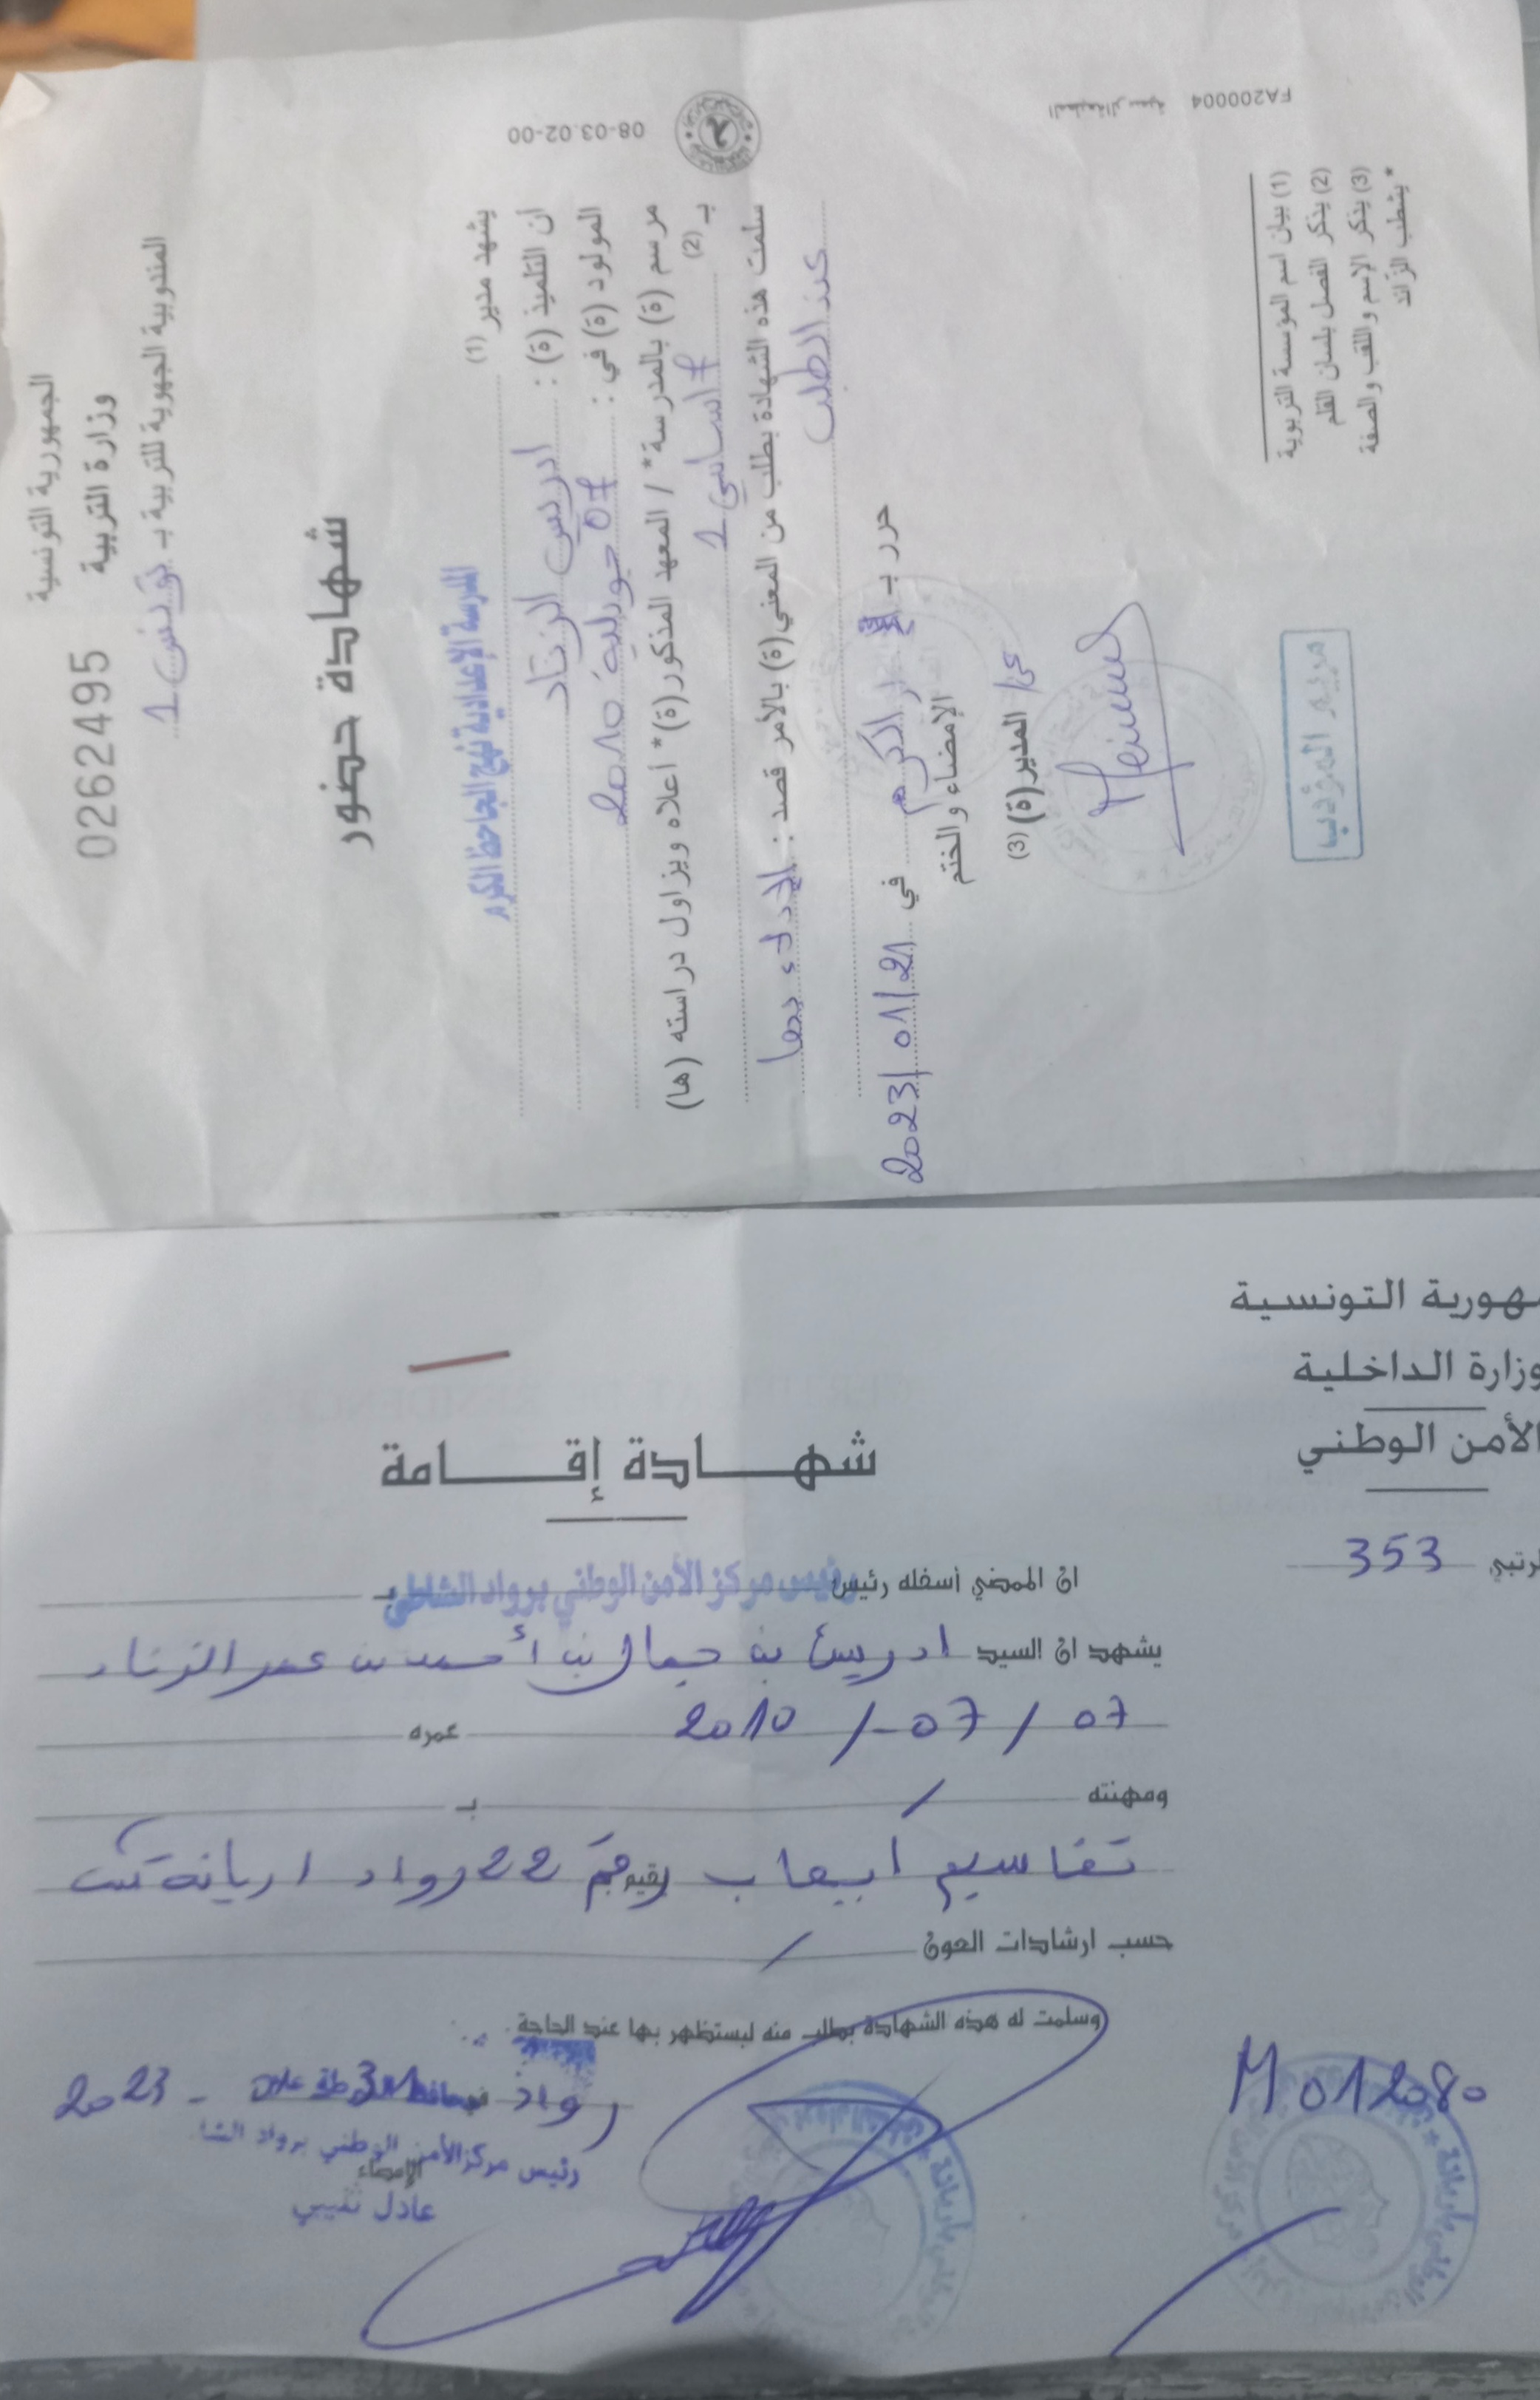 الجمهورية التونسية
وزارة التربية
0262495
المندوبية الجهوية للتربية بـ تونس 1
شهادة حضور
يشهد مدير (1) المدرسة الإعدادية نهج الجاحظ الكرم
أن التلميذ (ة) : ادريس الزناد
المولود (ة) في : 07 جويلية 2010
مرسم (ة) بالمدرسة* / المعهد المذكور(ة)* أعلاه ويزاول دراسته (ها)
بـ (2) 7 اساسي 1
سلمت هذه الشهادة بطلب من المعني(ة) بالأمر قصد : الإدلاء بها
عند الطلب
حرر بـ الكرم في 2023/01/21
الإمضاء والختم
(3) المدير(ة)
مريم المؤدب
(1) بيان اسم المؤسسة التربوية
(2) يذكر الفصل بلسان القلم
(3) يذكر الإسم واللقب والصفة
* يشطب الزائد
08-03.02-00
المطبعة الرسمية FA200004
ـهورية التونسية
وزارة الداخلية
الأمن الوطني
ـرتبي 353
شهـــادة إقـــامة
ان الممضي أسفله رئيس رئيس مركز الأمن الوطني برواد الشاطئ بـ
يشهد ان السيد ادريس بن جمال بن أحمد بن عمر الزناد
07 / 07 / 2010 عمره
ومهنته / بـ
تقاسيم رقم 22 رواد اريانة
حسب ارشادات العون /
وسلمت له هذه الشهادة بطلب منه ليستظهر بها عند الحاجة
رواد في 2023
رئيس مركز الأمن الوطني برواد الشا
الإمضاء
عادل
M 012080